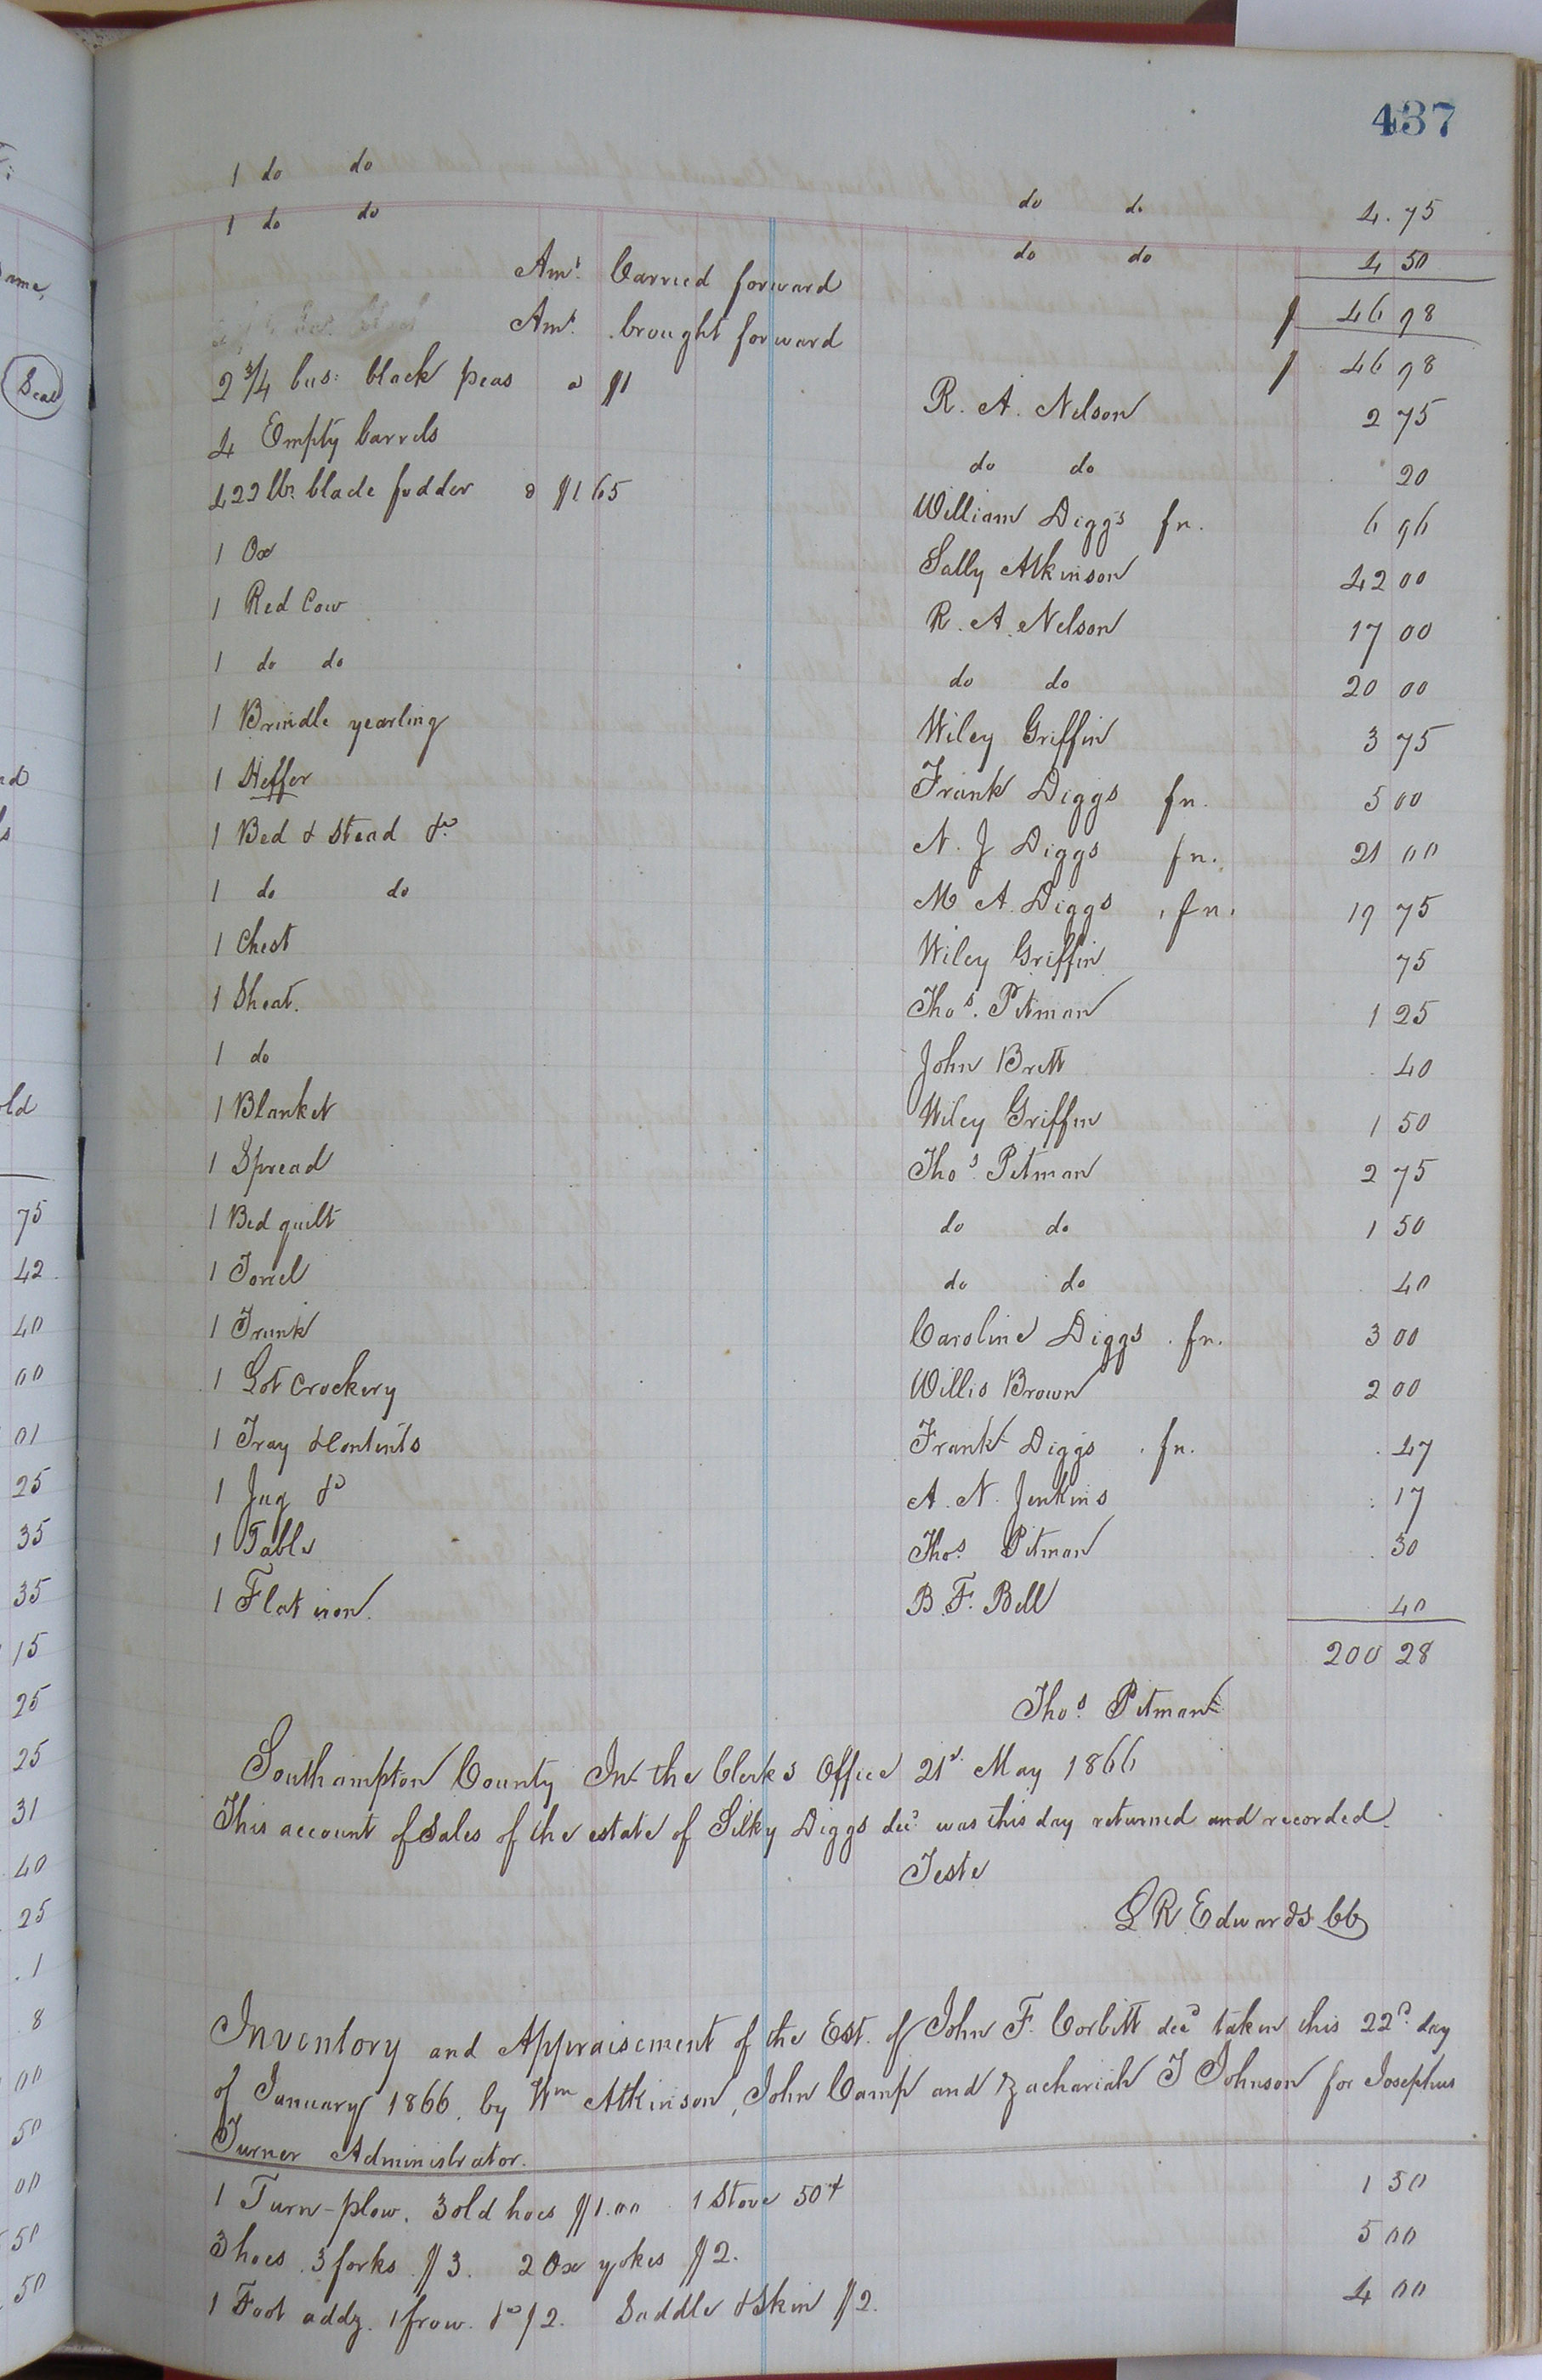 437
1 do do do do 4.75
1 do do do do 4 50
Amt. Carried forward $ 46 98
Amt. brought forward $ 46 98
2 3/4 bus: black peas a $1 R. A. Nelson 2 75
4 Empty barrels do do 20
422 lbs blade fodder a $1 65 William Diggs fn. 6 96
1 Ox Sally Atkinson 42 00
1 Red Cow R. A. Nelson 17 00
1 do do do do 20 00
1 Brindle yearling Wiley Griffin 3 75
1 Heffer Frank Diggs fn. 5 00
1 Bed & Stead &c N. J Diggs fn. 21 00
1 do do M A. Diggs fn. 19 75
1 Chest Wiley Griffin 75
1 Sheat. Thos. Pitman 1 25
1 do John Brett 40
1 Blanket Wiley Griffin 1 50
1 Spread Thos. Pitman 2 75
1 Bed quilt do do 1 50
1 Towel do do 40
1 Trunk Caroline Diggs fn. 3 00
1 Lot Crockery Willis Brown 2 00
1 Tray & Contents Frank Diggs fn. 47
1 Jug &c A. N. Jenkins 17
1 Table Thos. Pitman 30
1 Flat iron. B. F. Bell 40
200 28
Thos. Pitman
Southampton County In the Clerks Office 21st May 1866
This account of Sales of the estate of Silky Diggs decd was this day returned and recorded.
Teste
L R Edwards CC
Inventory and Appraisement of the Est. of John F. Corbitt decd taken this 22d day
of January 1866, by Wm Atkinson, John Camp and Zachariah T Johnson for Josephus
Turner Administrator.
1 Turn-plow. 3 old hoes $1.00 1 Stove 50¢ 1 50
3 hoes. 3 forks $3. 2 Ox yokes $2. 5 00
1 Foot addz. 1 frow. &c $2. Saddle & Skin $2. 4 00